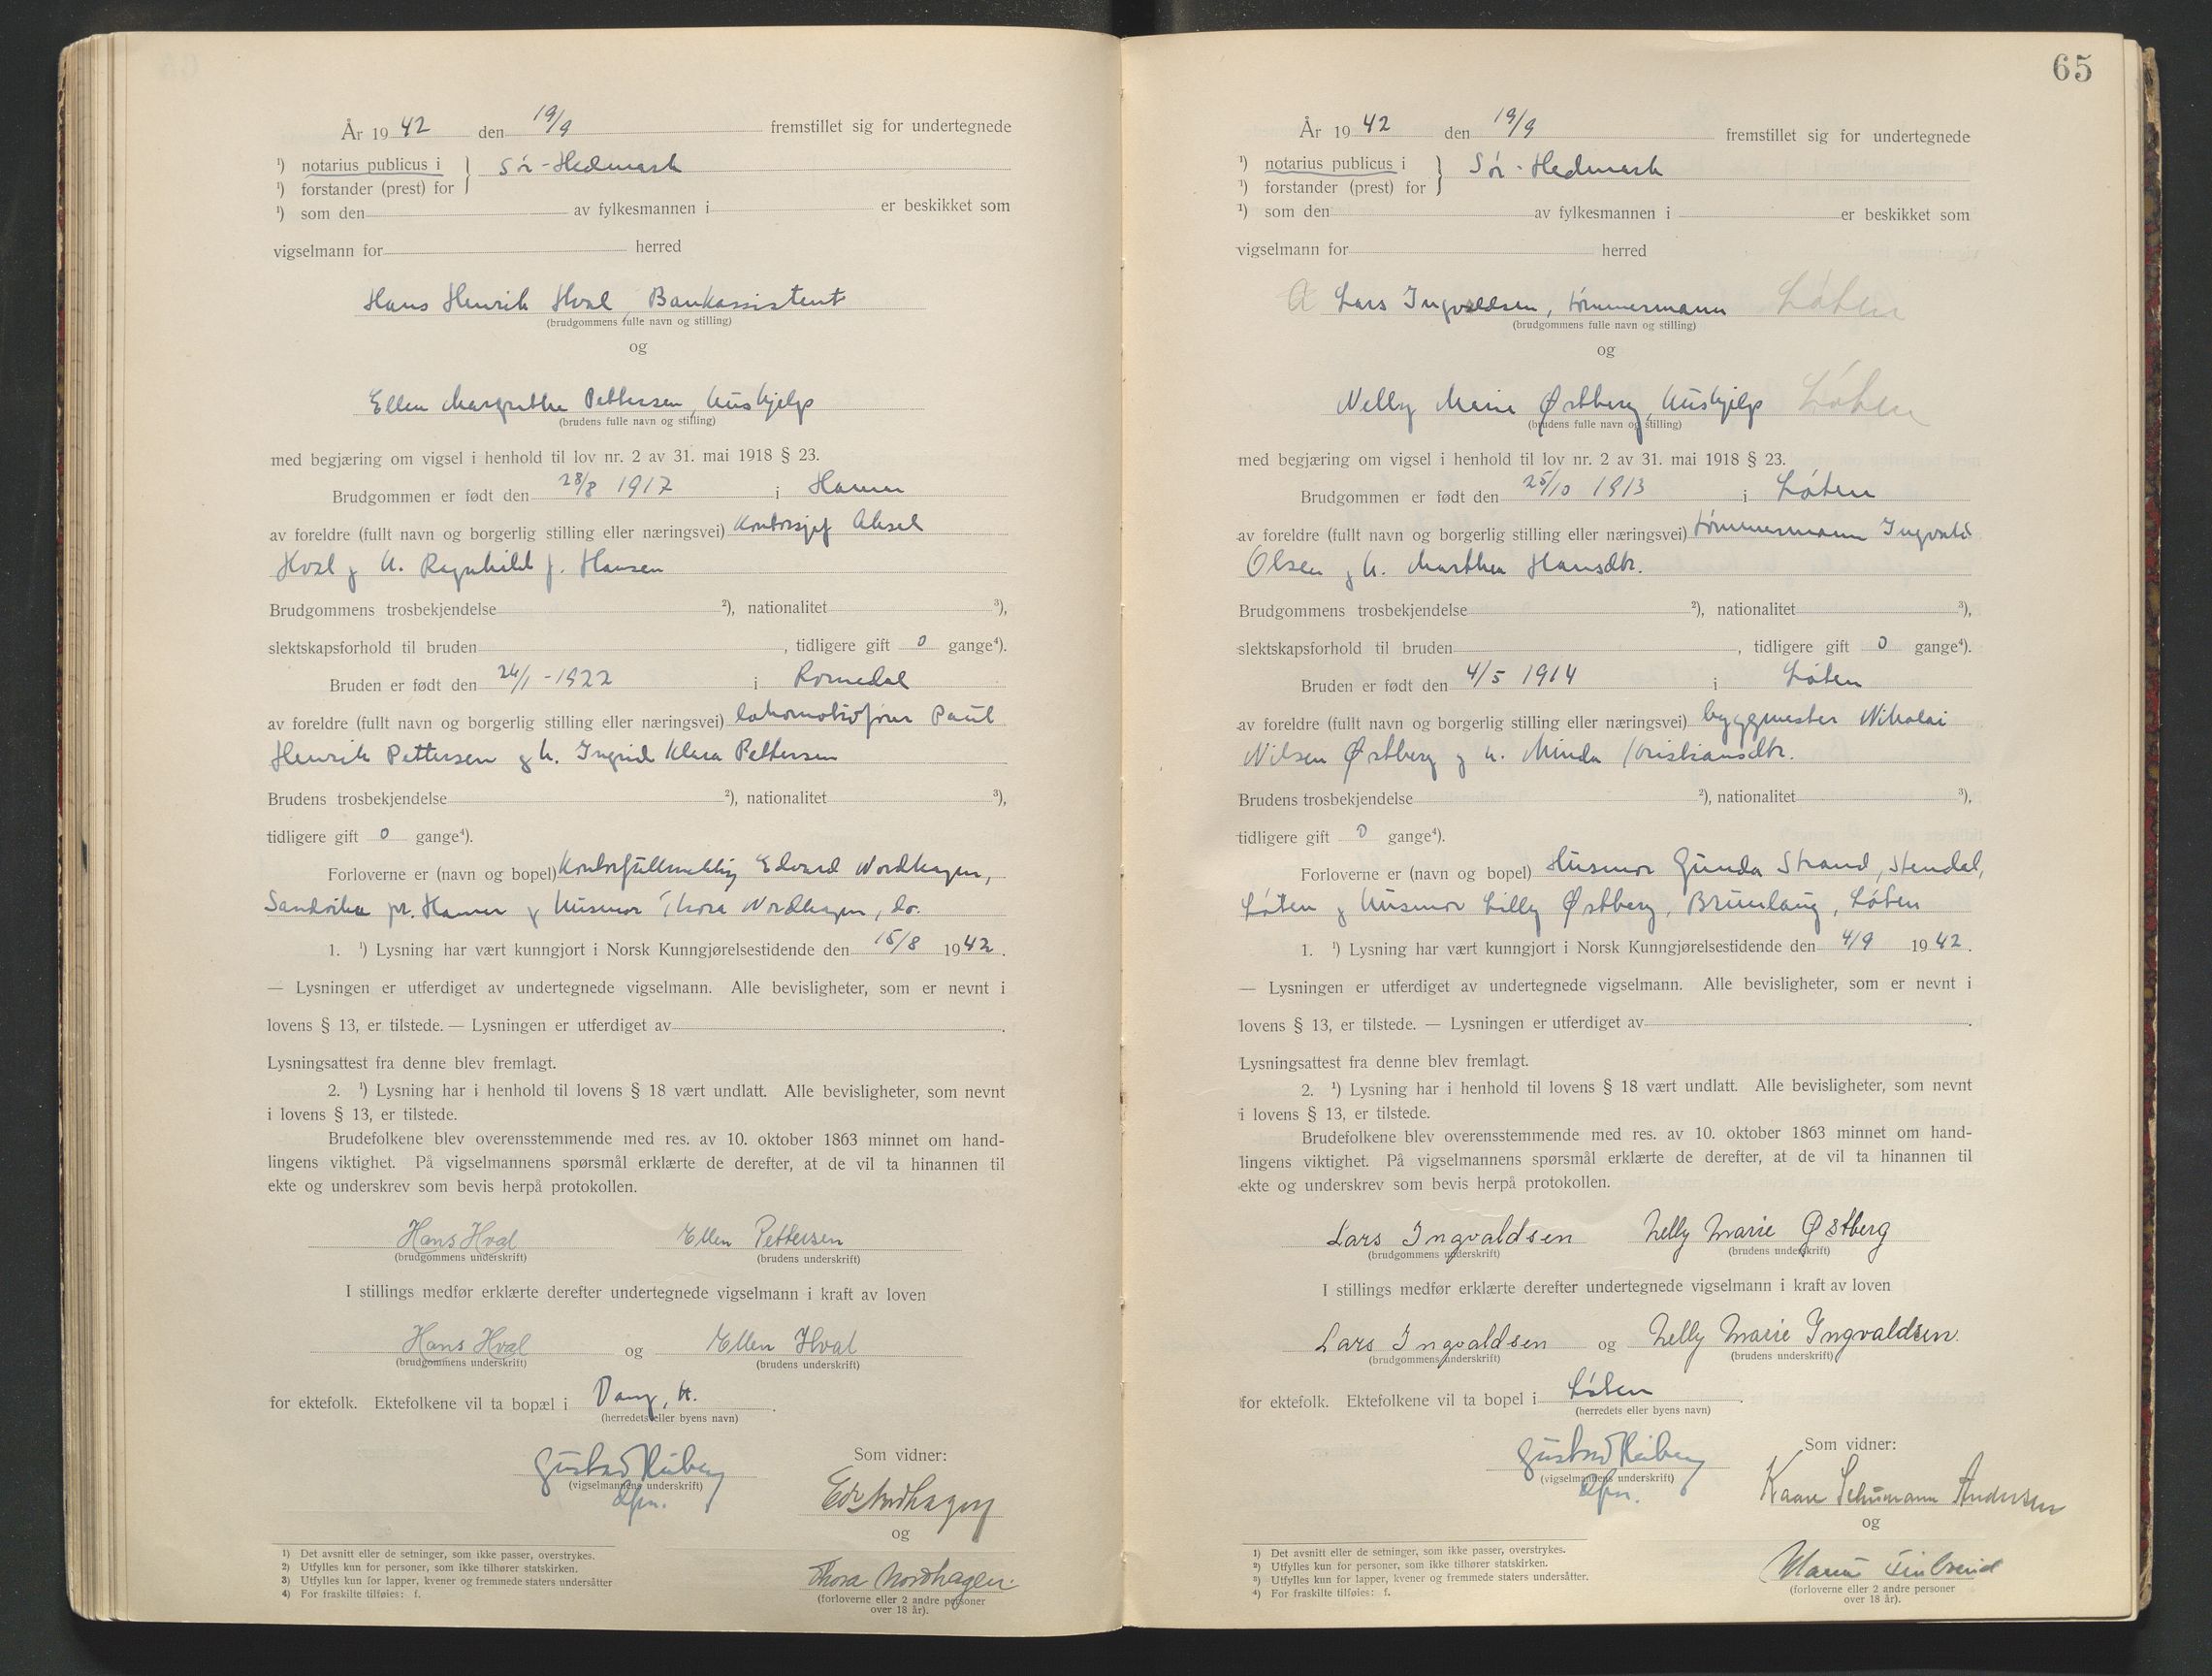 År 19 42 den 19/9 fremstillet sig for undertegnede
¹) notarius publicus i } Sør-Hedmark
¹) forstander (prest) for
¹) som den av fylkesmannen i er beskikket som
vigselmann for herred
Hans Henrik Hval, Bankassistent
(brudgommens fulle navn og stilling)
og
Ellen Margrethe Pettersen, hushjelp
(brudens fulle navn og stilling)
med begjæring om vigsel i henhold til lov nr. 2 av 31. mai 1918 § 23.
Brudgommen er født den 28/8 1917 i Hamar
av foreldre (fullt navn og borgerlig stilling eller næringsvei) Kontorsjef Aksel
Hval og h. Ragnhild f. Hansen
Brudgommens trosbekjendelse ²), nationalitet ³),
slektskapsforhold til bruden , tidligere gift 0 gange⁴).
Bruden er født den 24/1 - 1922 i Romedal
av foreldre (fullt navn og borgerlig stilling eller næringsvei) lokomotivfører Paul
Henrik Pettersen og h. Ingrid Klara Pettersen
Brudens trosbekjendelse ²), nationalitet ³),
tidligere gift 0 gange⁴).
Forloverne er (navn og bopel) Kontorfullmektig Edvard Nordhagen,
Sandvika pr. Hamar og husmor Thora Nordhagen, do.
1. ¹) Lysning har vært kunngjort i Norsk Kunngjørelsestidende den 15/8 1942.
— Lysningen er utferdiget av undertegnede vigselmann. Alle bevisligheter, som er nevnt i
lovens § 13, er tilstede. — Lysningen er utferdiget av .
Lysningsattest fra denne blev fremlagt.
2. ¹) Lysning har i henhold til lovens § 18 vært undlatt. Alle bevisligheter, som nevnt
i lovens § 13, er tilstede.
Brudefolkene blev overensstemmende med res. av 10. oktober 1863 minnet om hand-
lingens viktighet. På vigselmannens spørsmål erklærte de derefter, at de vil ta hinannen til
ekte og underskrev som bevis herpå protokollen.
Hans Hval Ellen Pettersen
(brudgommens underskrift) (brudens underskrift)
I stillings medfør erklærte derefter undertegnede vigselmann i kraft av loven
Hans Hval og Ellen Hval
(brudgommens underskrift) (brudens underskrift)
for ektefolk. Ektefolkene vil ta bopæl i Vang, H.
(herredets eller byens navn)
Som vidner:
Gustav Heiberg
(vigselmannens underskrift)
dfm.
Edv Nordhagen
og
Thora Nordhagen.
(forloverne eller 2 andre personer
over 18 år).
1) Det avsnitt eller de setninger, som ikke passer, overstrykes.
2) Utfylles kun for personer, som ikke tilhører statskirken.
3) Utfylles kun for lapper, kvener og fremmede staters undersåtter
4) For fraskilte tilføies: f.
65
År 19 42 den 19/9 fremstillet sig for undertegnede
¹) notarius publicus i } Sør-Hedmark
¹) forstander (prest) for
¹) som den av fylkesmannen i er beskikket som
vigselmann for herred
A Lars Ingvaldsen, tømmermann Løten
(brudgommens fulle navn og stilling)
og
Nelly Marie Østberg, hushjelp Løten
(brudens fulle navn og stilling)
med begjæring om vigsel i henhold til lov nr. 2 av 31. mai 1918 § 23.
Brudgommen er født den 25/10 1913 i Løten
av foreldre (fullt navn og borgerlig stilling eller næringsvei) tømmermann Ingvald
Olsen og h. Marthea Hansdtr.
Brudgommens trosbekjendelse ²), nationalitet ³),
slektskapsforhold til bruden , tidligere gift 0 gange⁴).
Bruden er født den 4/5 1914 i Løten
av foreldre (fullt navn og borgerlig stilling eller næringsvei) byggmester Nikolai
Nilsen Østberg og h. Minda Kristiansdtr.
Brudens trosbekjendelse ²), nationalitet ³),
tidligere gift 0 gange⁴).
Forloverne er (navn og bopel) Husmor Gunda Strand, Stendal,
Løten og husmor Lilly Østberg, Brunlaug, Løten
1. ¹) Lysning har vært kunngjort i Norsk Kunngjørelsestidende den 4/9 1942.
— Lysningen er utferdiget av undertegnede vigselmann. Alle bevisligheter, som er nevnt i
lovens § 13, er tilstede. — Lysningen er utferdiget av .
Lysningsattest fra denne blev fremlagt.
2. ¹) Lysning har i henhold til lovens § 18 vært undlatt. Alle bevisligheter, som nevnt
i lovens § 13, er tilstede.
Brudefolkene blev overensstemmende med res. av 10. oktober 1863 minnet om hand-
lingens viktighet. På vigselmannens spørsmål erklærte de derefter, at de vil ta hinannen til
ekte og underskrev som bevis herpå protokollen.
Lars Ingvaldsen Nelly Marie Østberg
(brudgommens underskrift) (brudens underskrift)
I stillings medfør erklærte derefter undertegnede vigselmann i kraft av loven
Lars Ingvaldsen og Nelly Marie Ingvaldsen.
(brudgommens underskrift) (brudens underskrift)
for ektefolk. Ektefolkene vil ta bopel i Løten .
(herredets eller byens navn)
Som vidner:
Gustav Heiberg
(vigselmannens underskrift)
dfm.
Kaare Schumann Andersen
og
(forloverne eller 2 andre personer
over 18 år).
¹) Det avsnitt eller de setninger, som ikke passer, overstrykes.
²) Utfylles kun for personer, som ikke tilhører statskirken.
³) Utfylles kun for lapper, kvener og fremmede staters undersåtter.
⁴) For fraskilte tilføies: f.